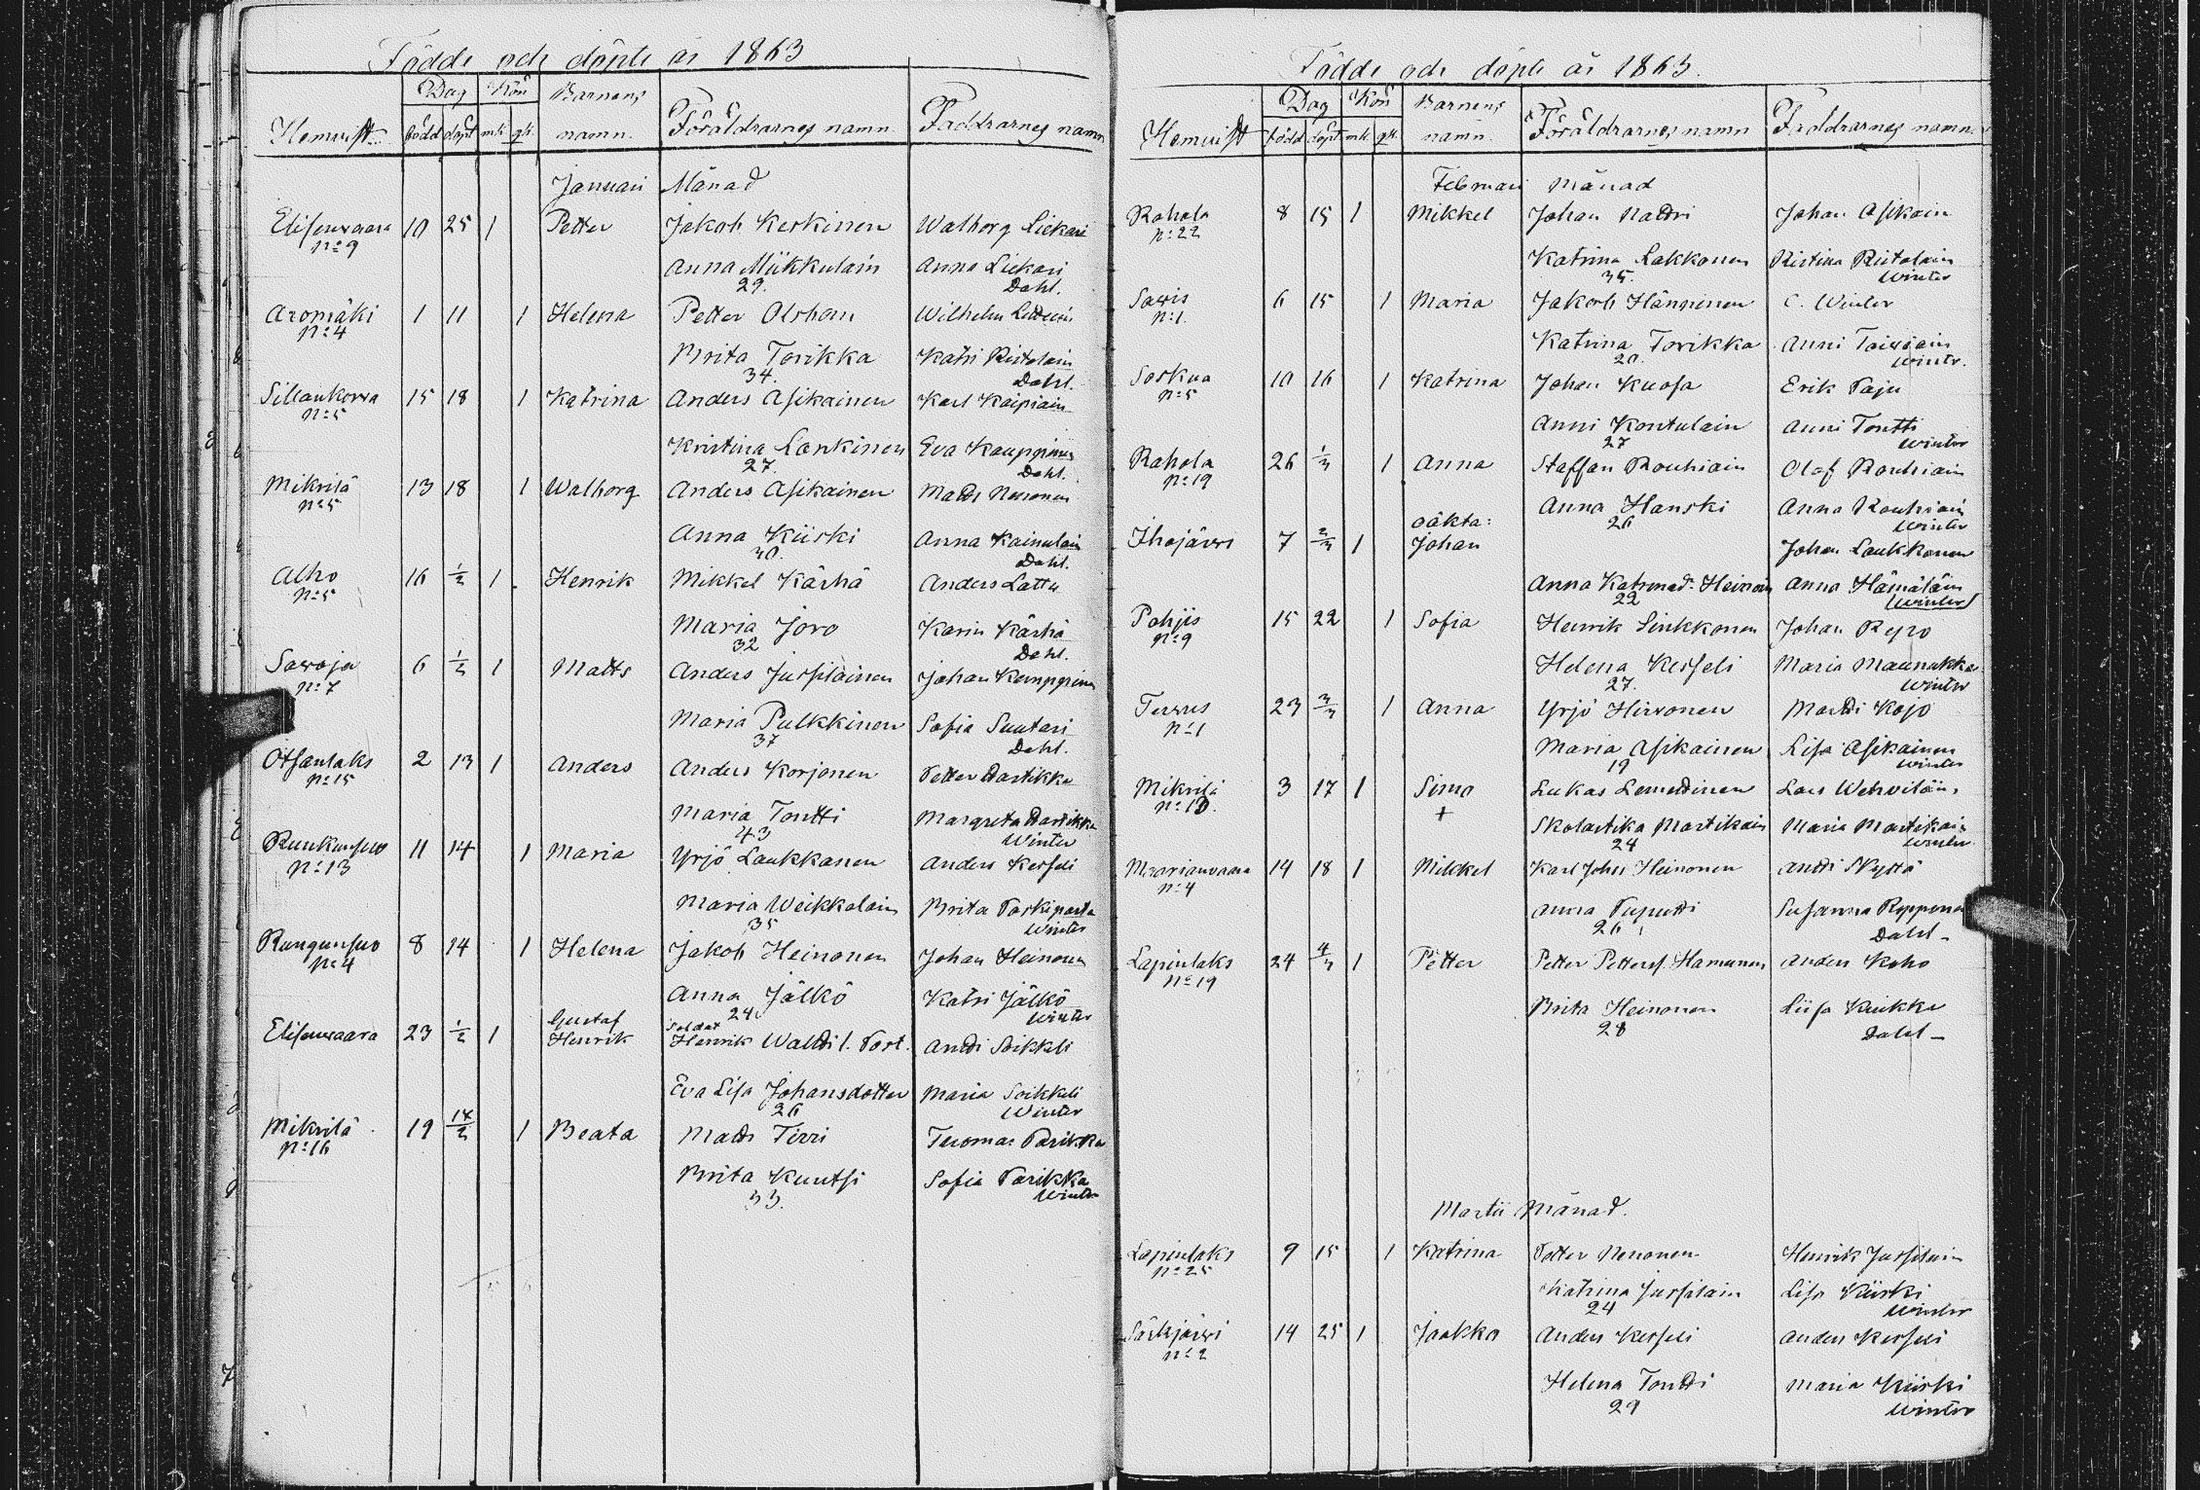 Födde och döpte år 1863
Hemvist Dag Kön Barnens namn. Föräldrarnes namn Faddrarnes namn
född döpt mk qk.
Januari Månad
Elisenvaara 10 25 1 Petter Jakob Keskinen Walborg Liekari
No 9
Anna Miikkulain Anna Liekari
29. Dahl.
Aromäki 1 11 1 Helena Petter Wilhelm
No 4
Brita Torikka Katri Ristolain
34. Dahl.
Sillankorva 15 18 1 Katrina Anders Asikainen Karl Kaipiain
No 5
Kristina Lankinen Eva Kauppinen
27. Dahl.
Mikrilä 13 18 1 Walborg Anders Asikainen Matts
No 5
Anna Kiiski Anna Kainulain
30. Dahl.
Alho 16 1/2 1 Henrik Mikkel Kärhä Anders Lattu
No 5
Maria Joro Karin Kärhä
32 Dahl.
Savoja 6 1/2 1 Matts Anders Jussilainen Johan Kauppinen
No 7
Maria Pulkkinen Sofia Suutari
37 Dahl.
Otsanlaks 2 13 1 Anders Anders Korjonen Petter
No 15
Maria Tontti Margreta
43 Winter
11 14 1 Maria Yrjö Laukkanen Anders Kesseli
No 13
Maria Weikkolain Brita
35 Winter
Rungunsuo 8 14 1 Helena Jakob Heinonen Johan Heinonen
No 4
Anna Jälkö Katri Jälkö
24 Winter
Gustaf Soldat
Elisenvaara 23 1/2 1 Henrik Henrik Antti Soikkeli
Eva Lisa Johansdotter Maria Soikkeli
26 Winter
Mikrilä 19 14/2 1 Beata Matts Tirri Tuomas Parikka
No 16
Brita Kuutsi Sofia Parikka
33. Winter
Födde och döpte år 1863.
Hemvist Dag Kön Barnens namn. Föräldrarnes namn Faddrarnes namn
född döpt mk. qk.
Februari Månad
Rahola 8 15 1 Mikkel Johan Natri Johan Asikain
No 22
Katrina Lakkonen Ristina Ristolain
35. Winter
Savis 6 15 1 Maria Jakob Hänninen C. Winter
No 1.
Katrina Torikka Anni Toiviain
20. Winter.
Soskua 10 16 1 Katrina Johan Kuosa Erik Paju
No 5
Anni Kontulain Anni Tontti
27 Winter
Rahola 26 1/3 1 Anna Staffan Rouhiain Olof Rouhiain
No 19
Anna Hanski Anna Rouhiain
26 Winter
oäkta:
Ihojärvi 7 2/3 1 Johan Johan Laukkanen
Anna Katrina d. Heinoin Anna Hämäläin
22 Winter
Pohjis 15 22 1 Sofia Henrik Sinkkonen Johan Repo
No 9
Helena Kesseli Maria Maunukka
27. Winter
Tervus 23 3/3 1 Anna Yrjö Hirvonen Matti Kojo
No 1
Maria Asikainen Lisa Asikainen
19 Winter
Mikrilä 3 17 1 Simo Lukas Lemettinen Lars
No 10.
+ Skolastika Martikain Maria Martikain
24 Winter
14 18 1 Mikkel Karl Johan Heinonen Antti Skyttä
No 4
Anna Puputti Susanna Repponen
26 Dahl
Lapinlaks 24 4/3 1 Petter Petter Petterss. Hamunen Anders Koho
No 19
Brita Heinonen Liisa Kuikka
28 Dahl
Martii Månad.
Lapinlaks 9 15 1 Katrina Petter Nenonen Henrik Jussilain
No 25
Katrina Jussilain Lisa Kiiski
24 Winter
Särkjärvi 14 25 1 Jaakko Anders Kesseli Anders Kesseli
No 2
Helena Tontti Maria Kiiski
29 Winter